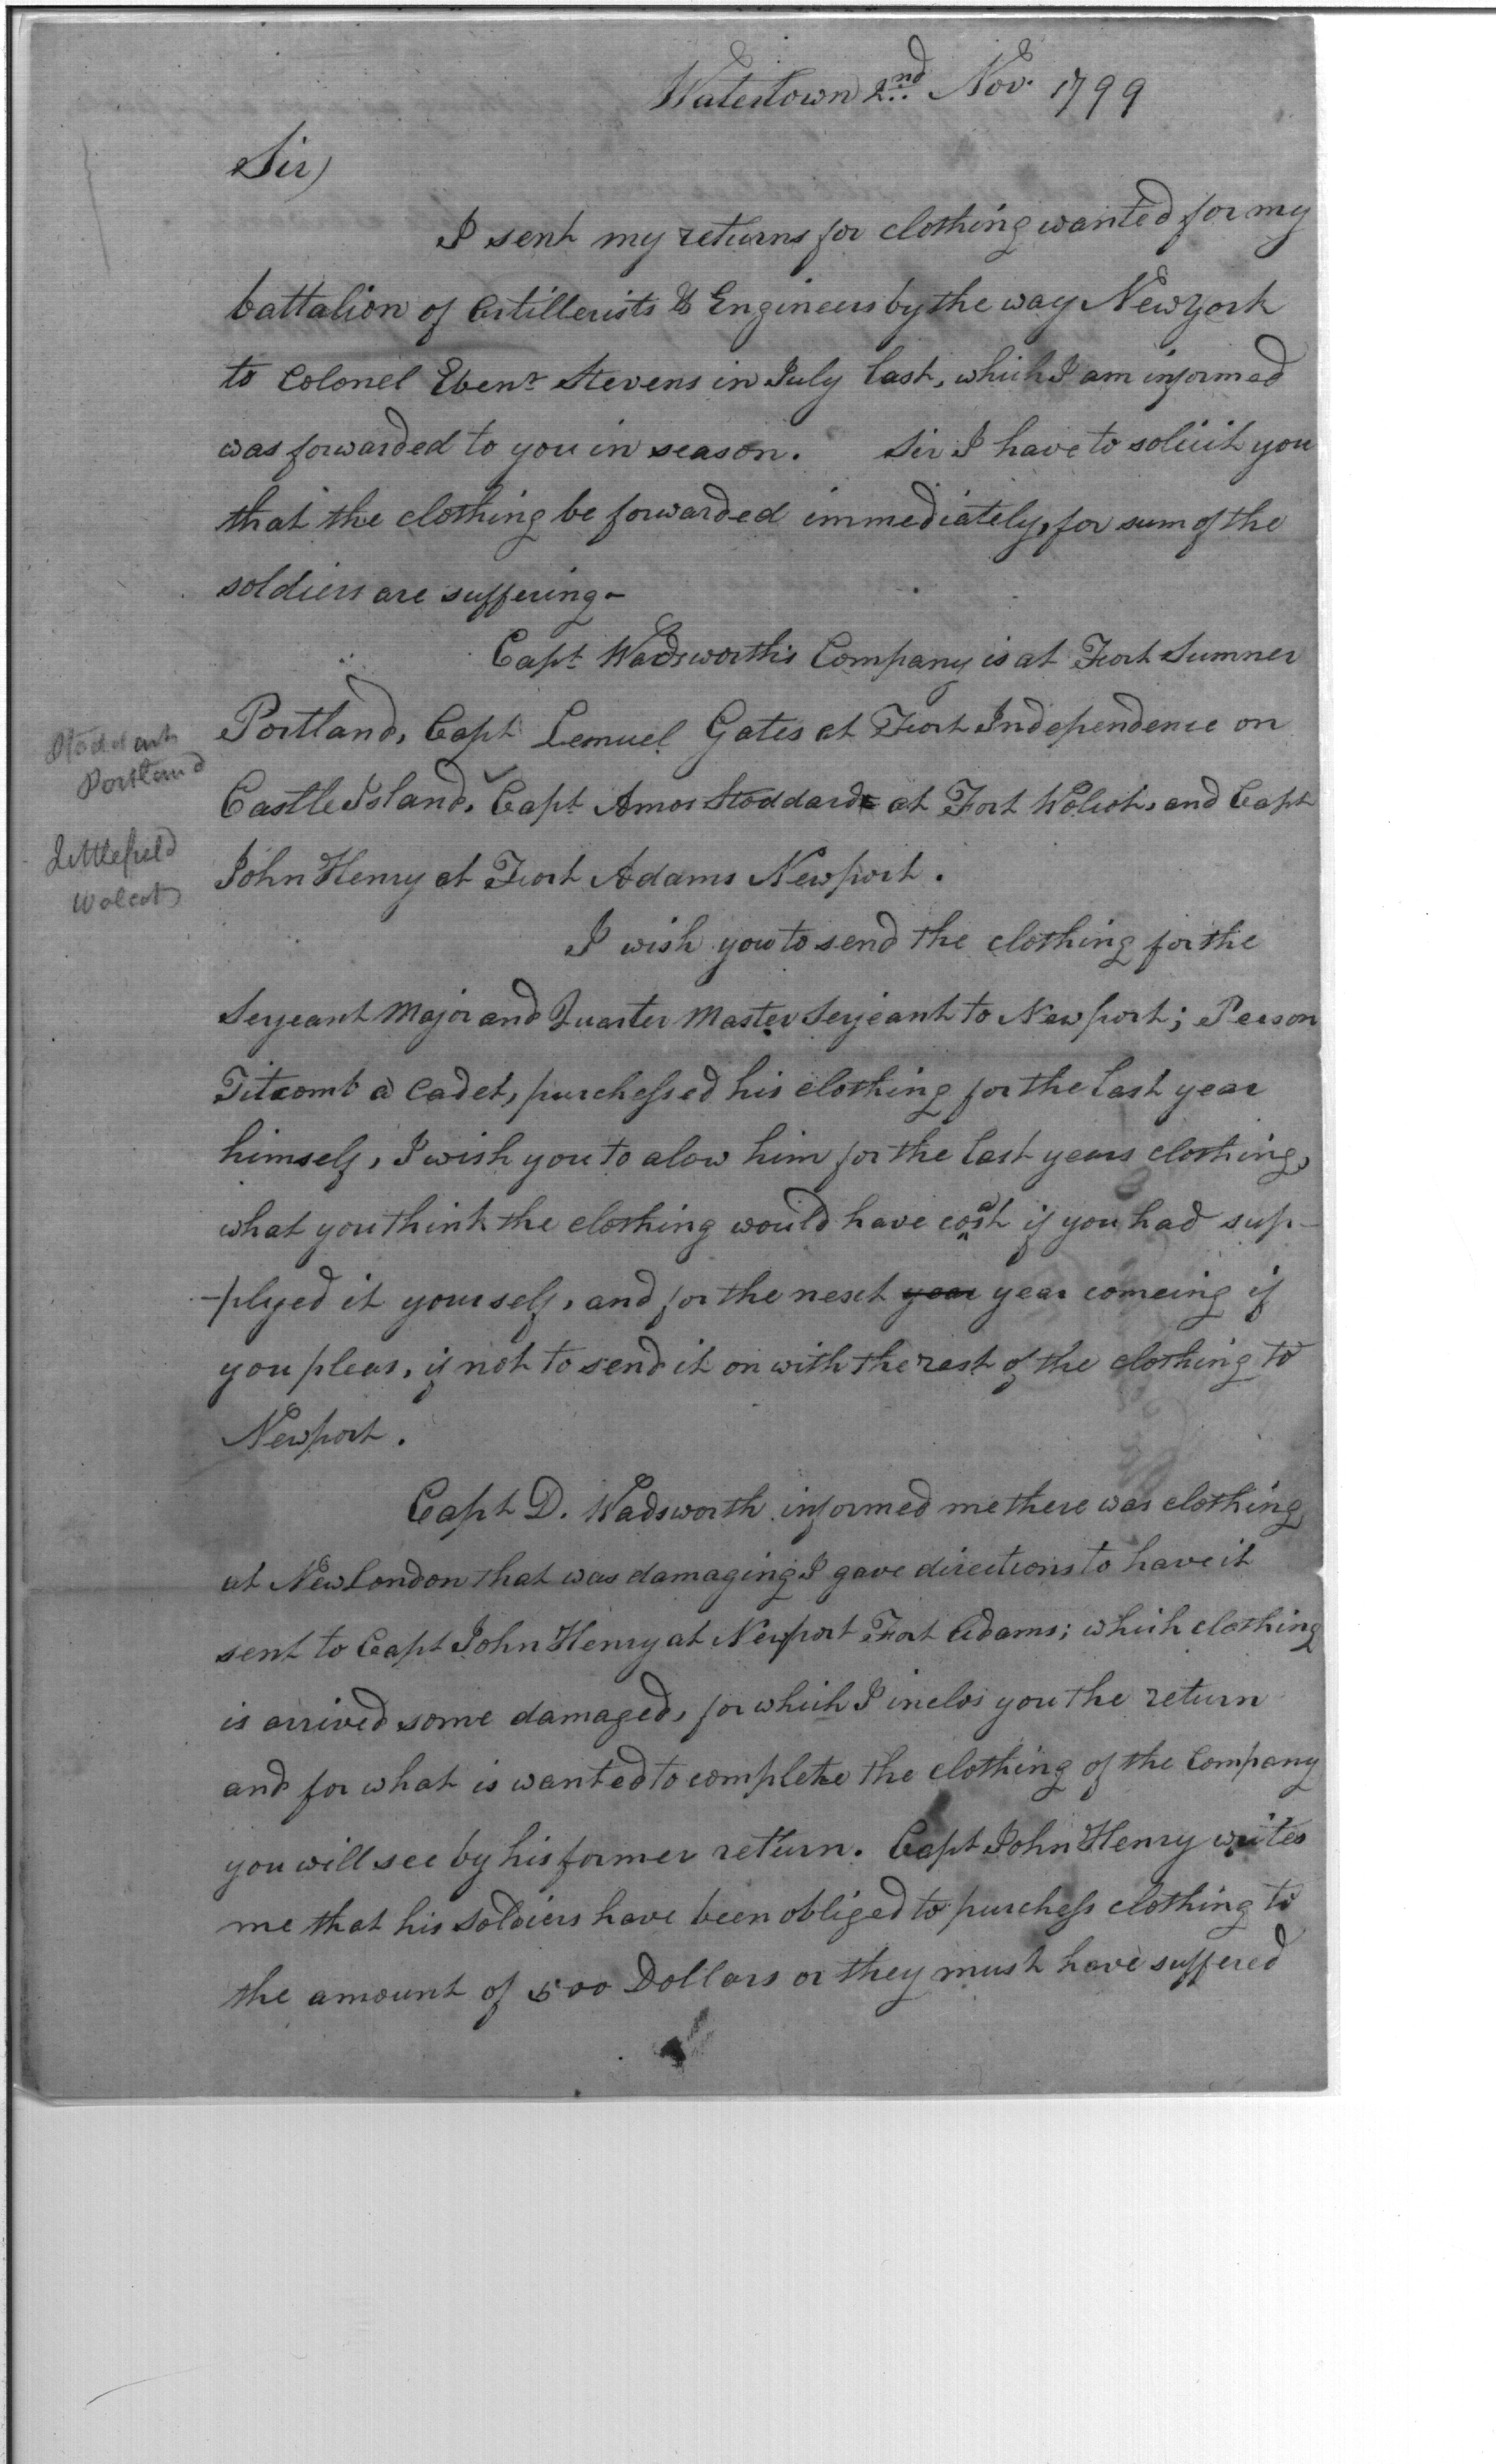 Watertown 2nd Nov. 1799
Sir,
I sent my returns for clothing wanted for my
battalion of Artillerists & Engineers by the way New York
to Colonel Ebenr Stevens in July last, which I am informed
was forwarded to you in season. Sir I have to solicit you
that the clothing be forwarded immediately, for sum of the
soldiers are suffering-
Capt Wadsworth's Company is at Fort Sumner
Portland, Capt Lemuel Gates at Fort Independence on
Castle Island, Capt Amos Stoddard at Fort Wolcot, and Capt
John Henry at Fort Adams Newport.
Stoddart
Portland
Littlefield
Wolcot
I wish you to send the clothing for the
Serjeant Major and Quarter Master Serjeant to Newport; Peeson
Titcomb a Cadet, purchessed his clothing for the last year
himself, I wish you to alow him for the last years clothing,
what you think the clothing would have cost if you had sup-
-plyed it yourself, and for the next year year comeing if
you pleas, if not to send it on with the rest of the clothing to
Newport.
Capt D. Wadsworth informed me there was clothing
at New London that was damaging I gave directions to have it
sent to Capt John Henry at Newport Fort Adams; which clothing
is arrived some damaged, for which I inclos you the return
and for what is wanted to complete the clothing of the Company
you will see by his former return. Capt John Henry writes
me that his soldiers have been obliged to purchess clothing to
the amount of 500 Dollars or they must have suffered